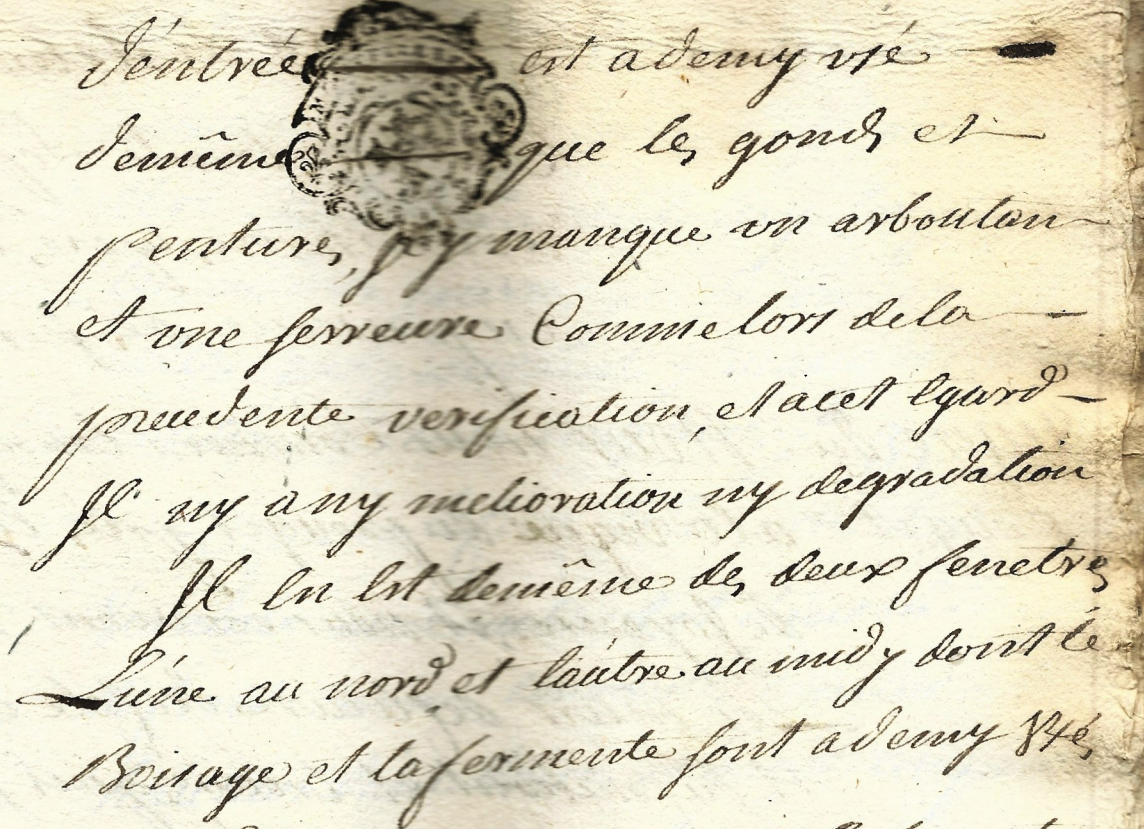 d'entrée est ademy usé
demême que les gonds et
pentures, Jl y manque un arboutan
et une serreure Comme lors dela
precedente verification, et acet Egard
Jl ny a ny melioration ny degradation
Jl En Est demême des deux fenetres
L'une au nord et l'autre au midy dont le
Boisage et la fermente sont ademy Usés